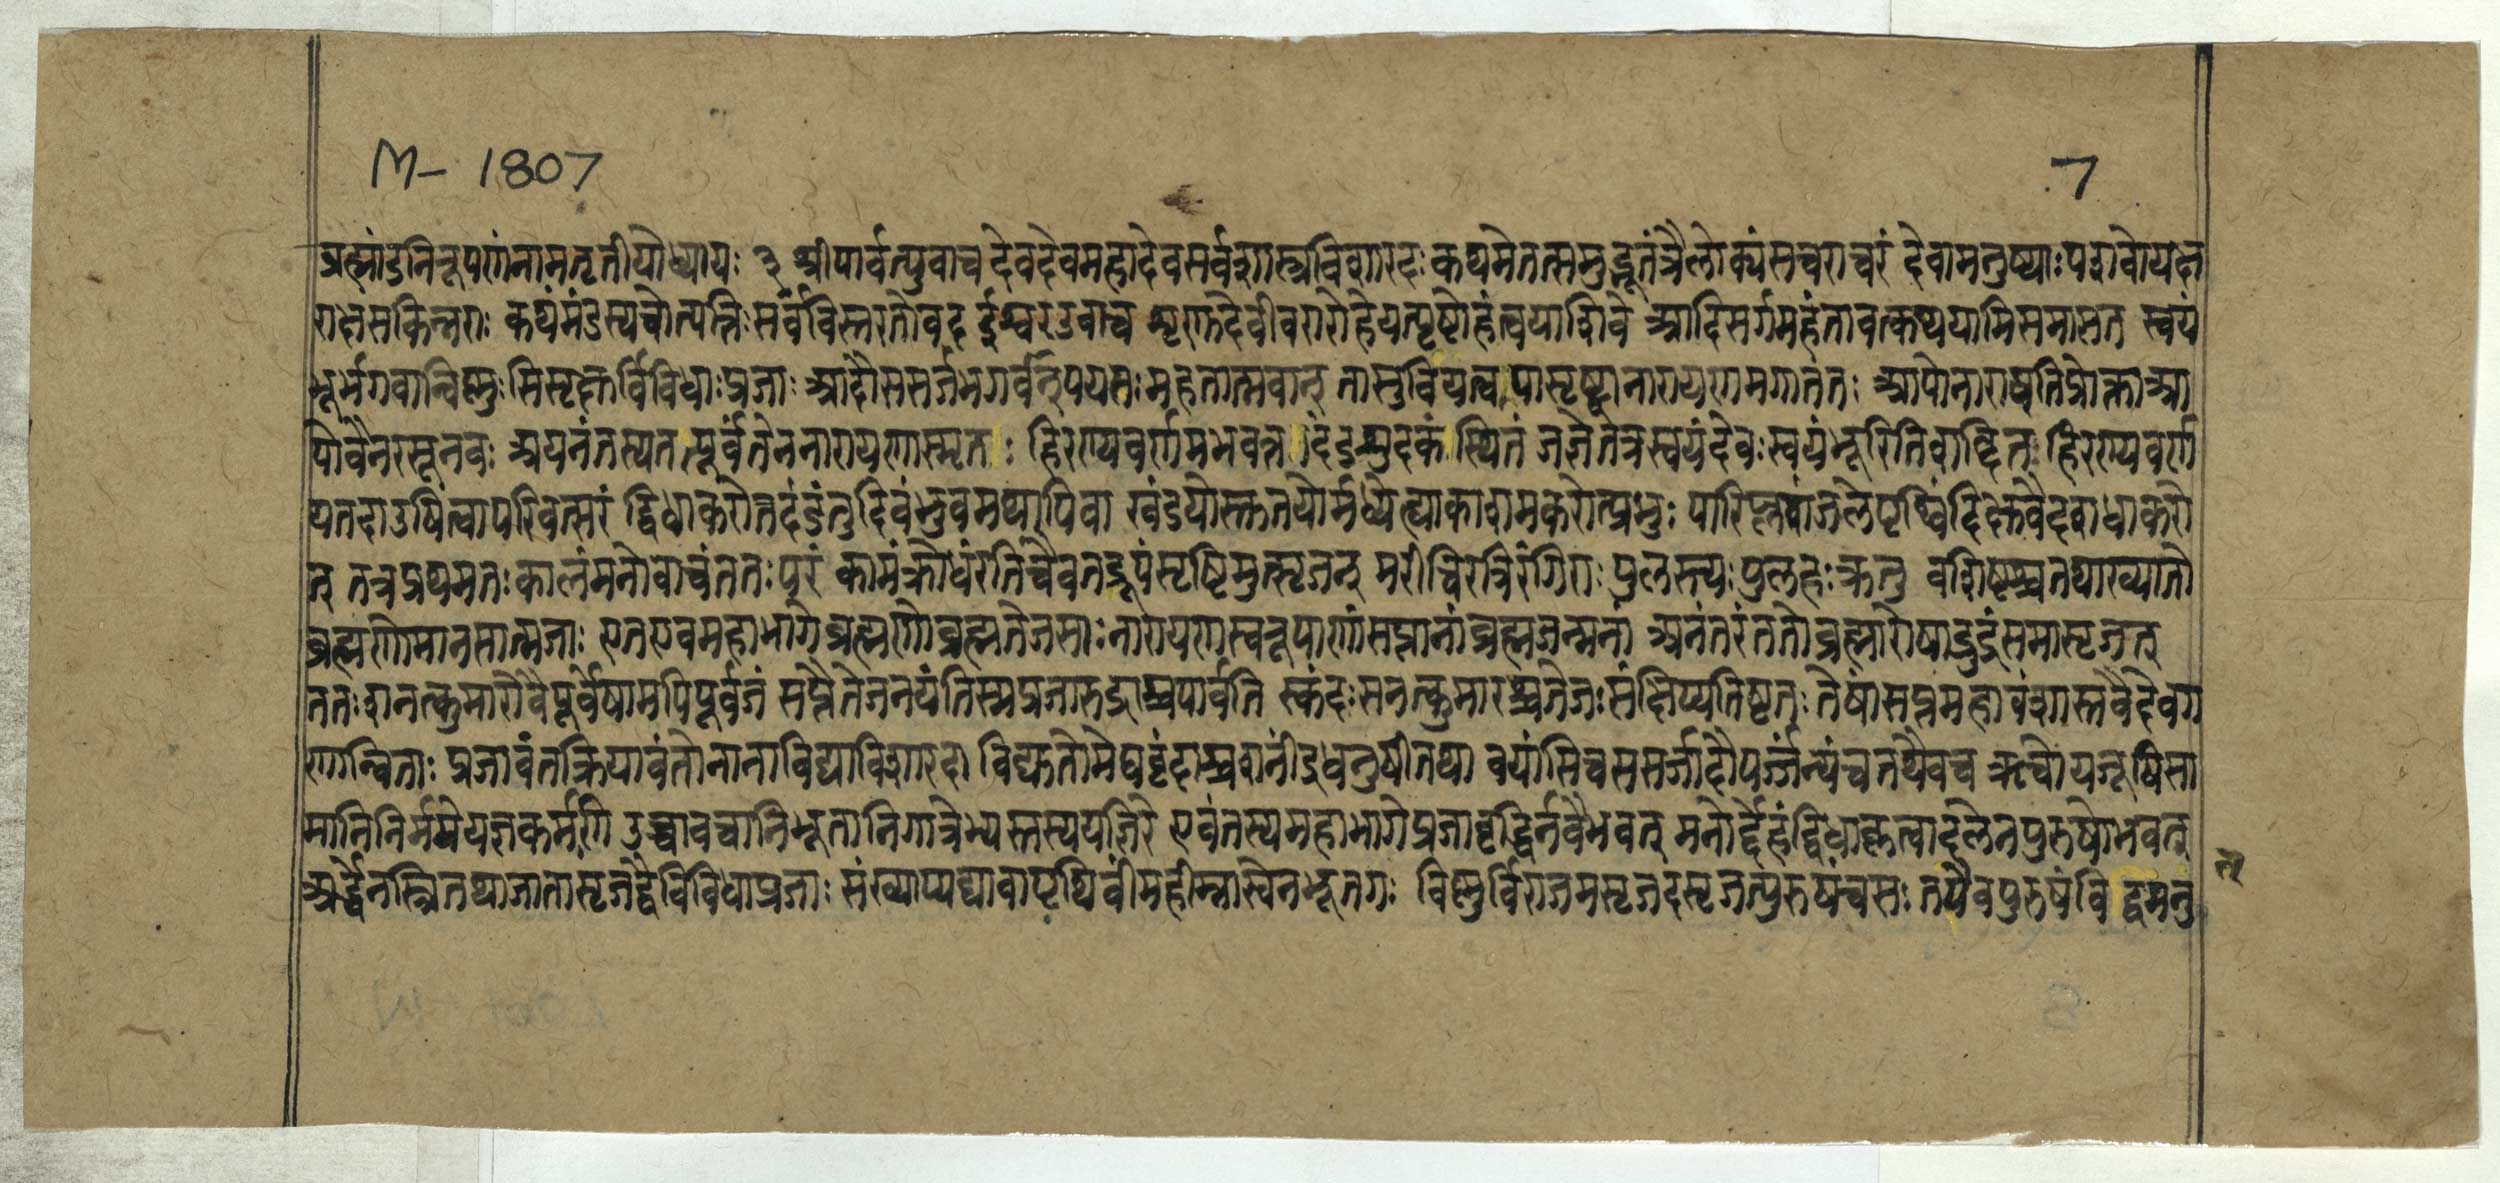 M- 1807
7
ब्रह्मांडनिरूपणंनामतृतीयोध्यायः ३ श्रीपार्वत्युवाच देवदेवमहादेवसर्वशास्त्रविशारदः कथमेतत्समुद्भूतंत्रैलोक्यंसचराचरं देवामनुष्याःपशवोयक्ष
राक्षसकिन्नराः कथंमंडस्यचोत्पत्तिःसर्वंविस्तरतोवद ईश्वरउवाच शृणुदेवीवरारोहेयत्पृष्टोहंत्वयाशिवे आदिसर्गमहंतावत्कथयामिसमासत स्वयं
भूर्भगवान्विष्णुःसिसृक्षुर्विविधाःप्रजाः आदौससर्जभगवन्पयसःमहतात्मवान् तासुवियत्व पासृष्ट्वानारायणमगातंतः आपोनाराइतिप्रोक्ताआ
पोवैनरसूनवः अयनंतस्यतत्पूर्वंतेननारायणास्मृतः हिरण्यवर्णमभवत्तदंडमुदकंस्थितं जज्ञेतत्रस्वयंदेवःस्वयंभूरितिशब्दितः हिरण्यवर्ण
यतदाउषित्वापरिवत्सरं द्विधाकरोत्तदंडंतुदिवंभुवमथापिवा खंडयोस्तुतयोर्मध्येत्याकाशमकरोत्प्रभुः पारिप्लवांजलेपृथ्विंदिक्षुवैदशधाकरो
त् तत्रप्रथमतःकालंमनोवाचंततःपरं कामंक्रोधंरतिंचैवतद्रूपंसृष्टिमुत्सृजन् मरीचिरत्रिरंगिराः पुलस्त्यःपुलहःक्रतु वशिष्टश्चतथाख्यातो
ब्रह्मणोमानसात्मजाः एतएवमहाभागेब्रह्मणोब्रह्मतेजसाःनारायणस्वरूपाणांसप्तानांब्रह्मजन्मनां अनंतरंततोब्रह्मारोषाद्रुद्रंसमासृजत्
ततःशनत्कुमारोवैपूर्वेषामपिपूर्वजं सप्तैतेजनयंतिस्मप्रजारुद्राश्चपार्वति स्कंदःसनत्कुमारश्चतेजःसंक्षिप्यतिष्टतः तेषांसप्तमहावंशास्तवैदेवग
णान्विताः प्रजावंतक्रियावंतोनानाविद्याविशारदा विद्युतोमेघवृंदाश्चशनींद्रधनुषीतथा वयांसिचससर्जादौपर्ज्जन्यंचतथैवच ऋचोयजूषिसा
मानिनिर्ममेयज्ञकर्मणि उच्चावचानिभूतानिगात्रेभ्यस्तस्ययज्ञिरे एवंतस्यमहाभागेप्रजावृद्धिर्नवैभवत् मनोर्द्देहंद्विधाकृत्वार्दलेनपुरुषोभवत्
अर्द्धेनस्त्रितथाजातासृजद्वैविविधाप्रजाः संख्याप्यद्यावापृथिवींमहीम्नास्वेनभूतगः विष्णुर्विराजमसृजदसृजत्पुरुषंचसः तथैवपुरुषंविद्धिमनु
त्